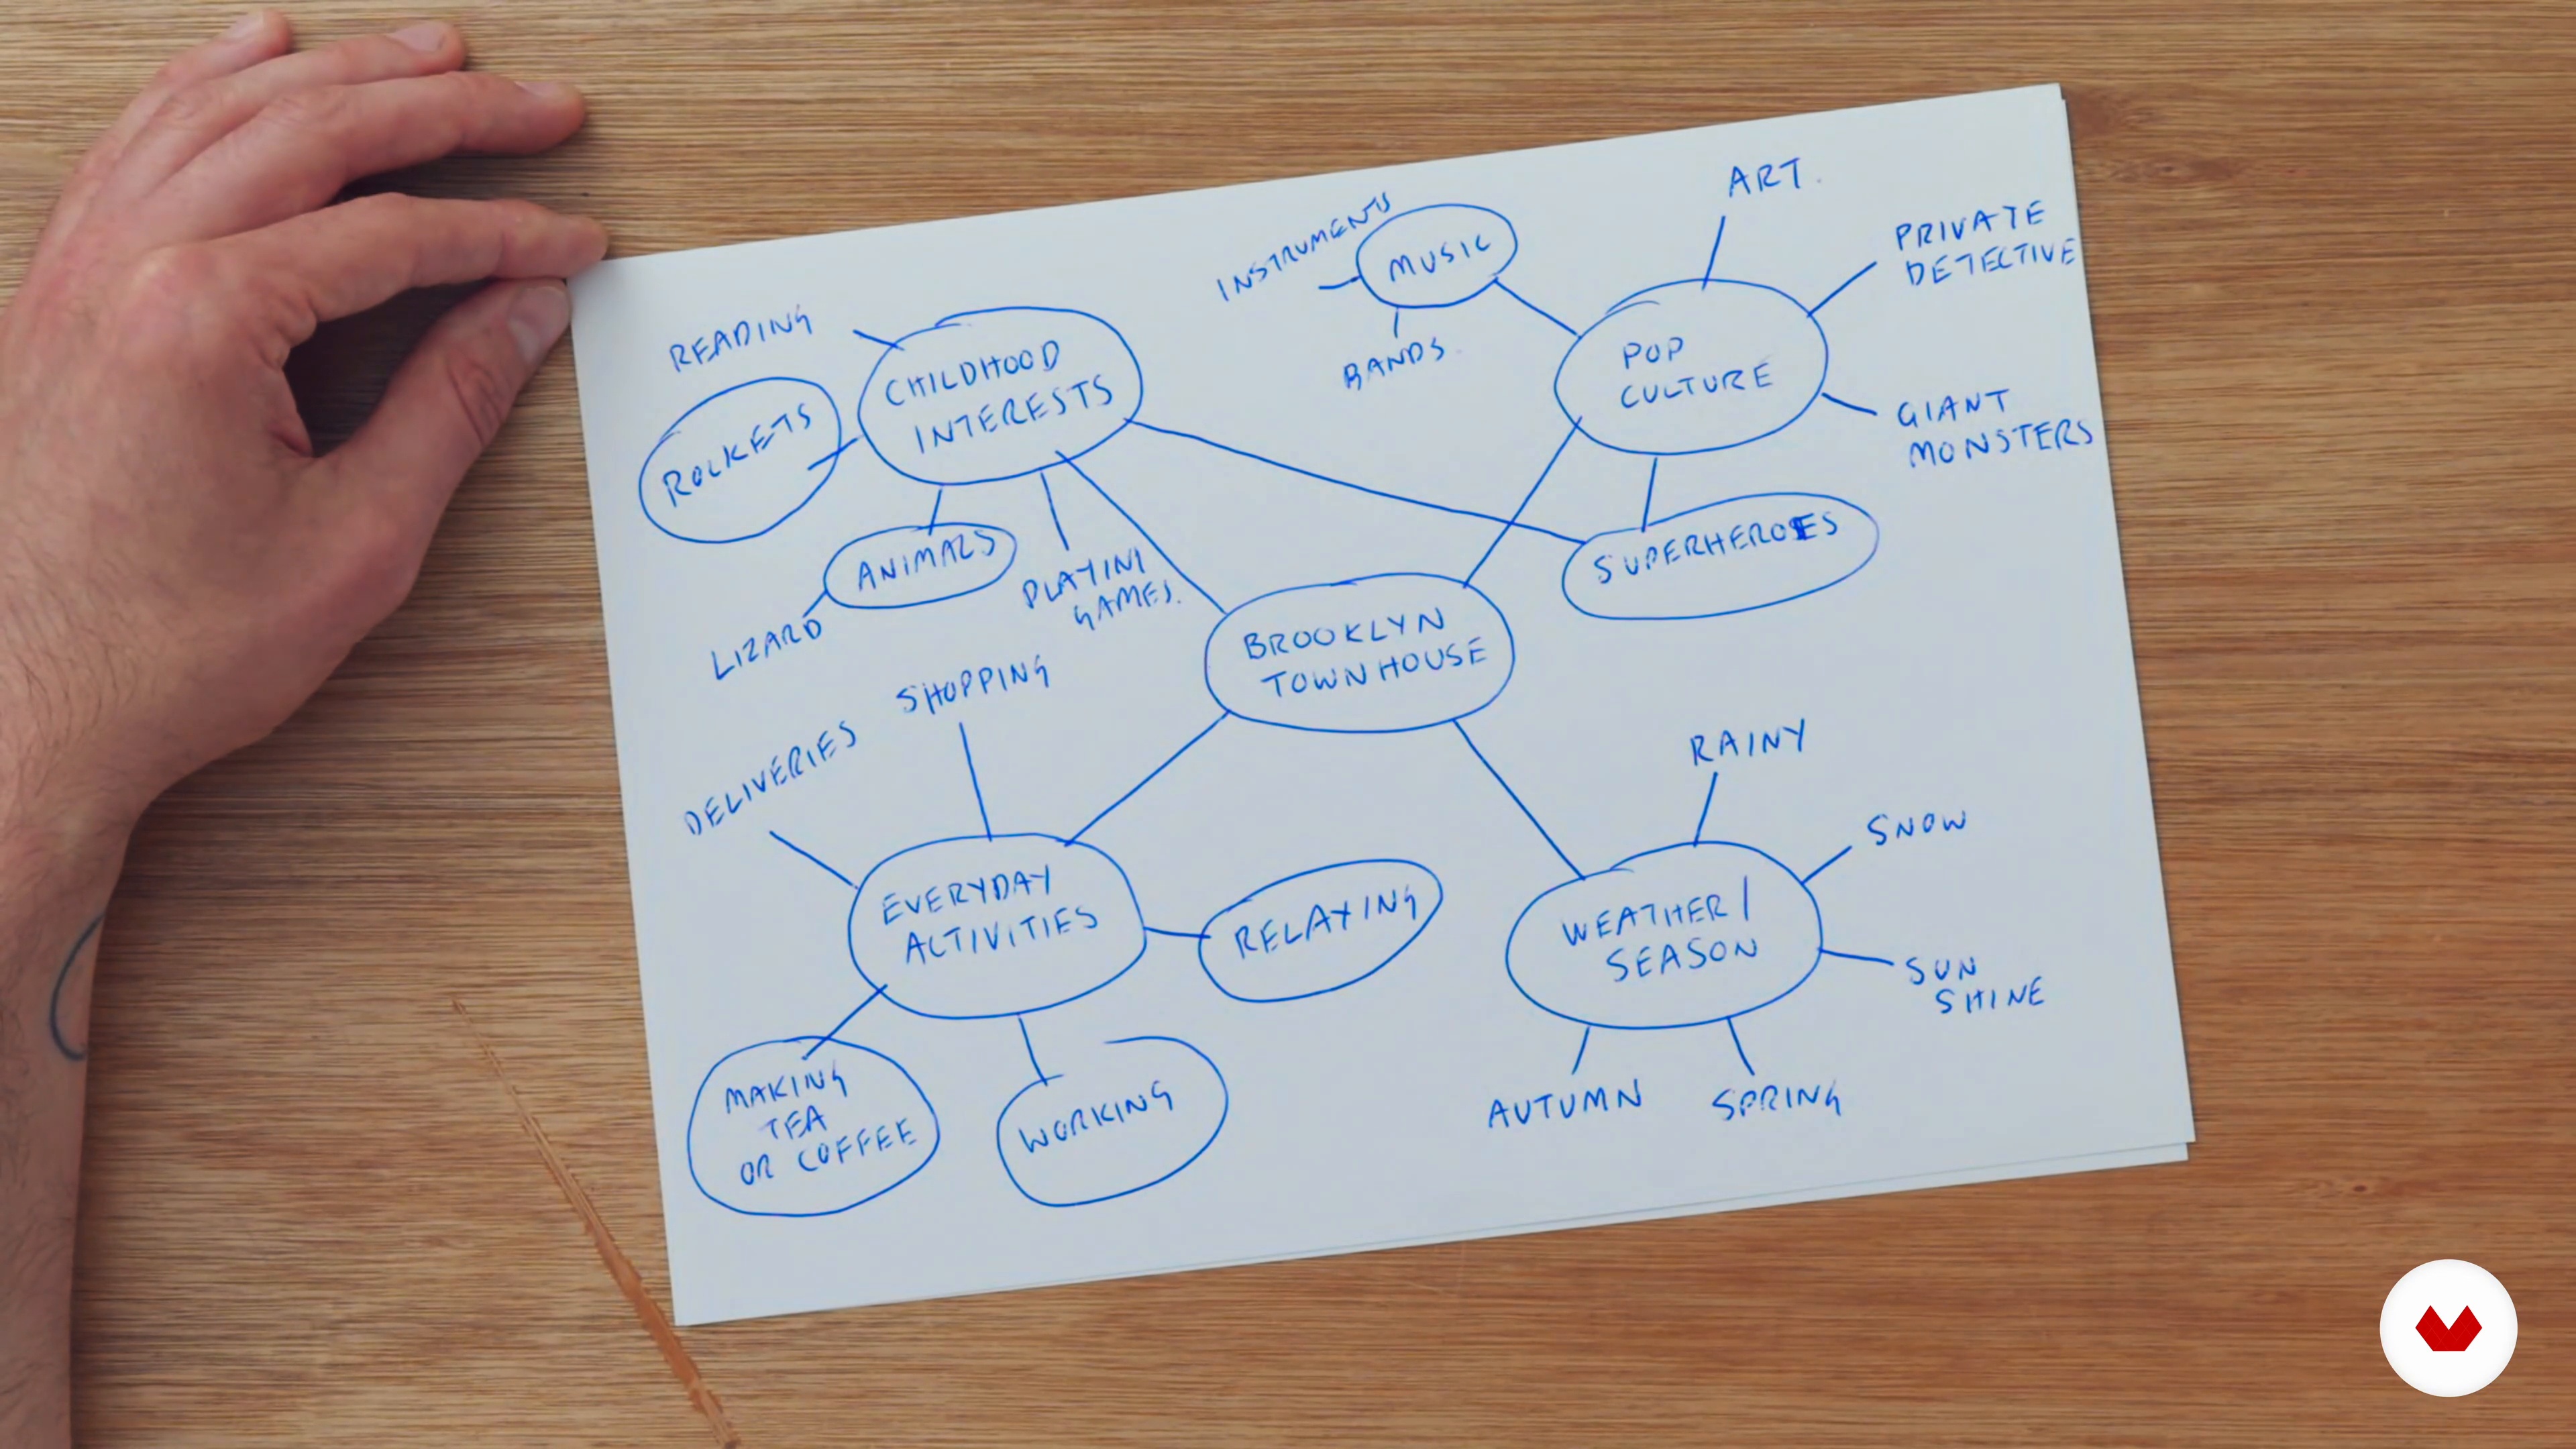 ART.
PRIVATE
DETECTIVE
INSTRUMENTS
MUSIC
BANDS.
POP
CULTURE
GIANT
MONSTERS
SUPERHEROES
READING
CHILDHOOD
INTERESTS
ROCKETS
ANIMALS
LIZARD
PLAYING
GAMES.
BROOKLYN
TOWNHOUSE
SHOPPING
DELIVERIES
EVERYDAY
ACTIVITIES
RELAXING
MAKING
TEA
OR COFFEE
WORKING
RAINY
SNOW
WEATHER/
SEASON
SUN
SHINE
AUTUMN
SPRING